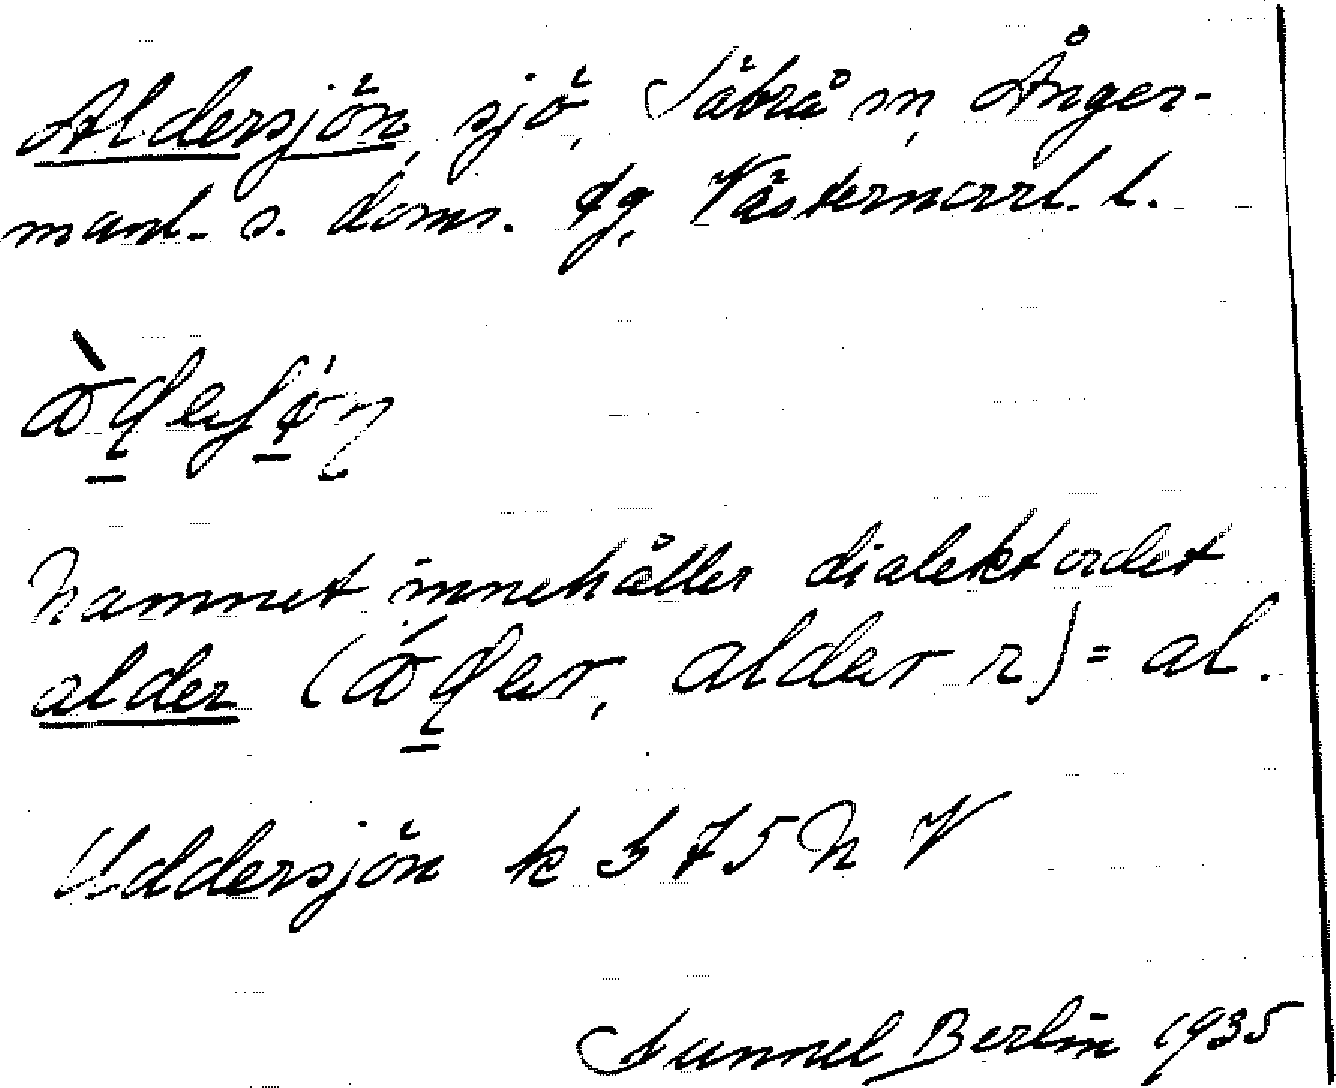 Aldersjön sjö, Säbrå sn, Ånger-
manl. s. doms. tg, Västernorrl. l.
namnet innehåller dialektordet
alder (alder n) = al.
Uddersjön k 375 N V
Gunnel Berlin 1935